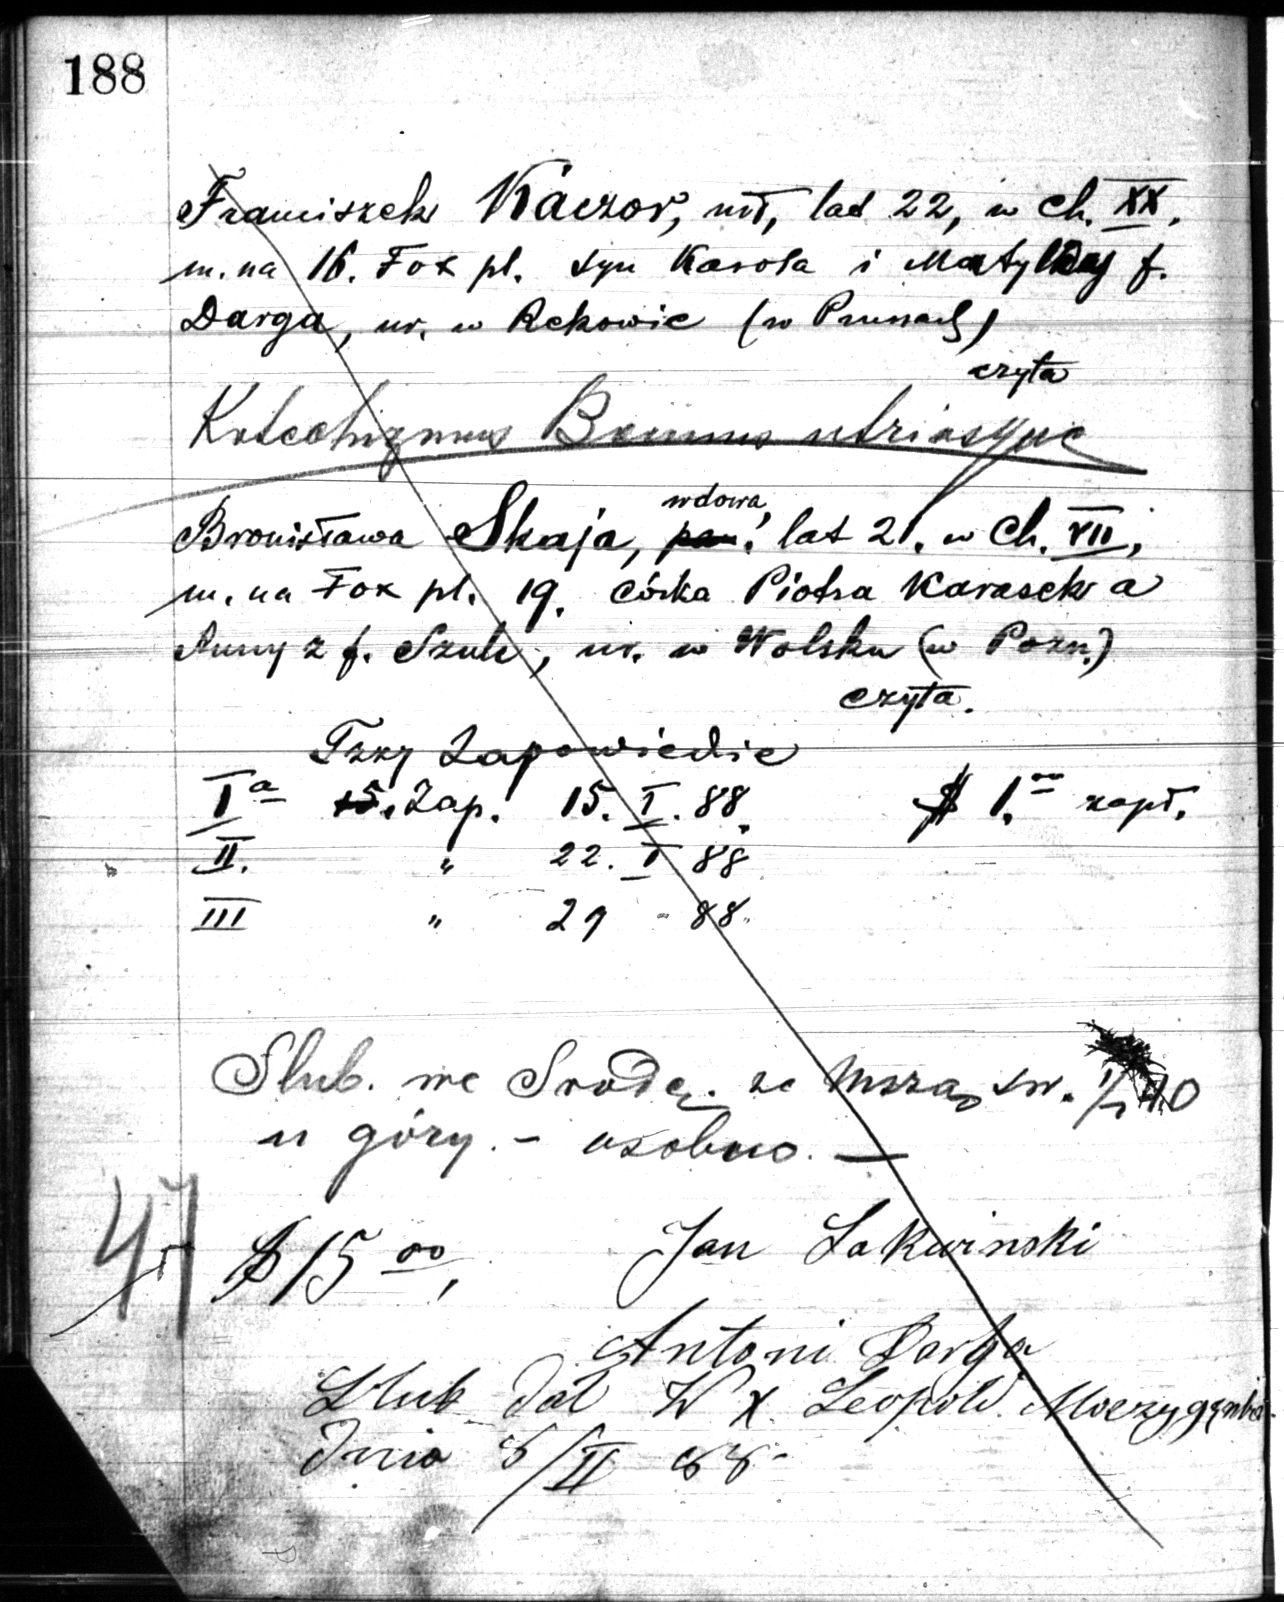 188
Franciszek Kaczor, mł, lat 22, w Ch. XX.
m. na 16. Fox pl. syn Karola i Matyldy f.
Darga, ur. w Rekowie (w Prusach)
czyta
Katechizmus Bonus utriusque
wdowa,
Bronisława Skaja, pan. lat 21. w Ch. VII,
m. na Fox pl. 19. córka Piotra Karasek a
Anny z f. Szulc, ur. w Wolsku (w Pozn.)
czyta.
Trzy Zapowiedzie
I a 15. Zap. 15. I. 88. $ 1.00 zapł.
II. " 22. I 88
III " 29 - 88.
Slub. we Srodę. ze Mszą sw. 1/2 10
u góry. - osobno. —
47
$ 15 00,
Jan Lakwinski
Antoni Darga
Slub dał W X. Leopold Moczygęmba.
Dnia 8/II 88-